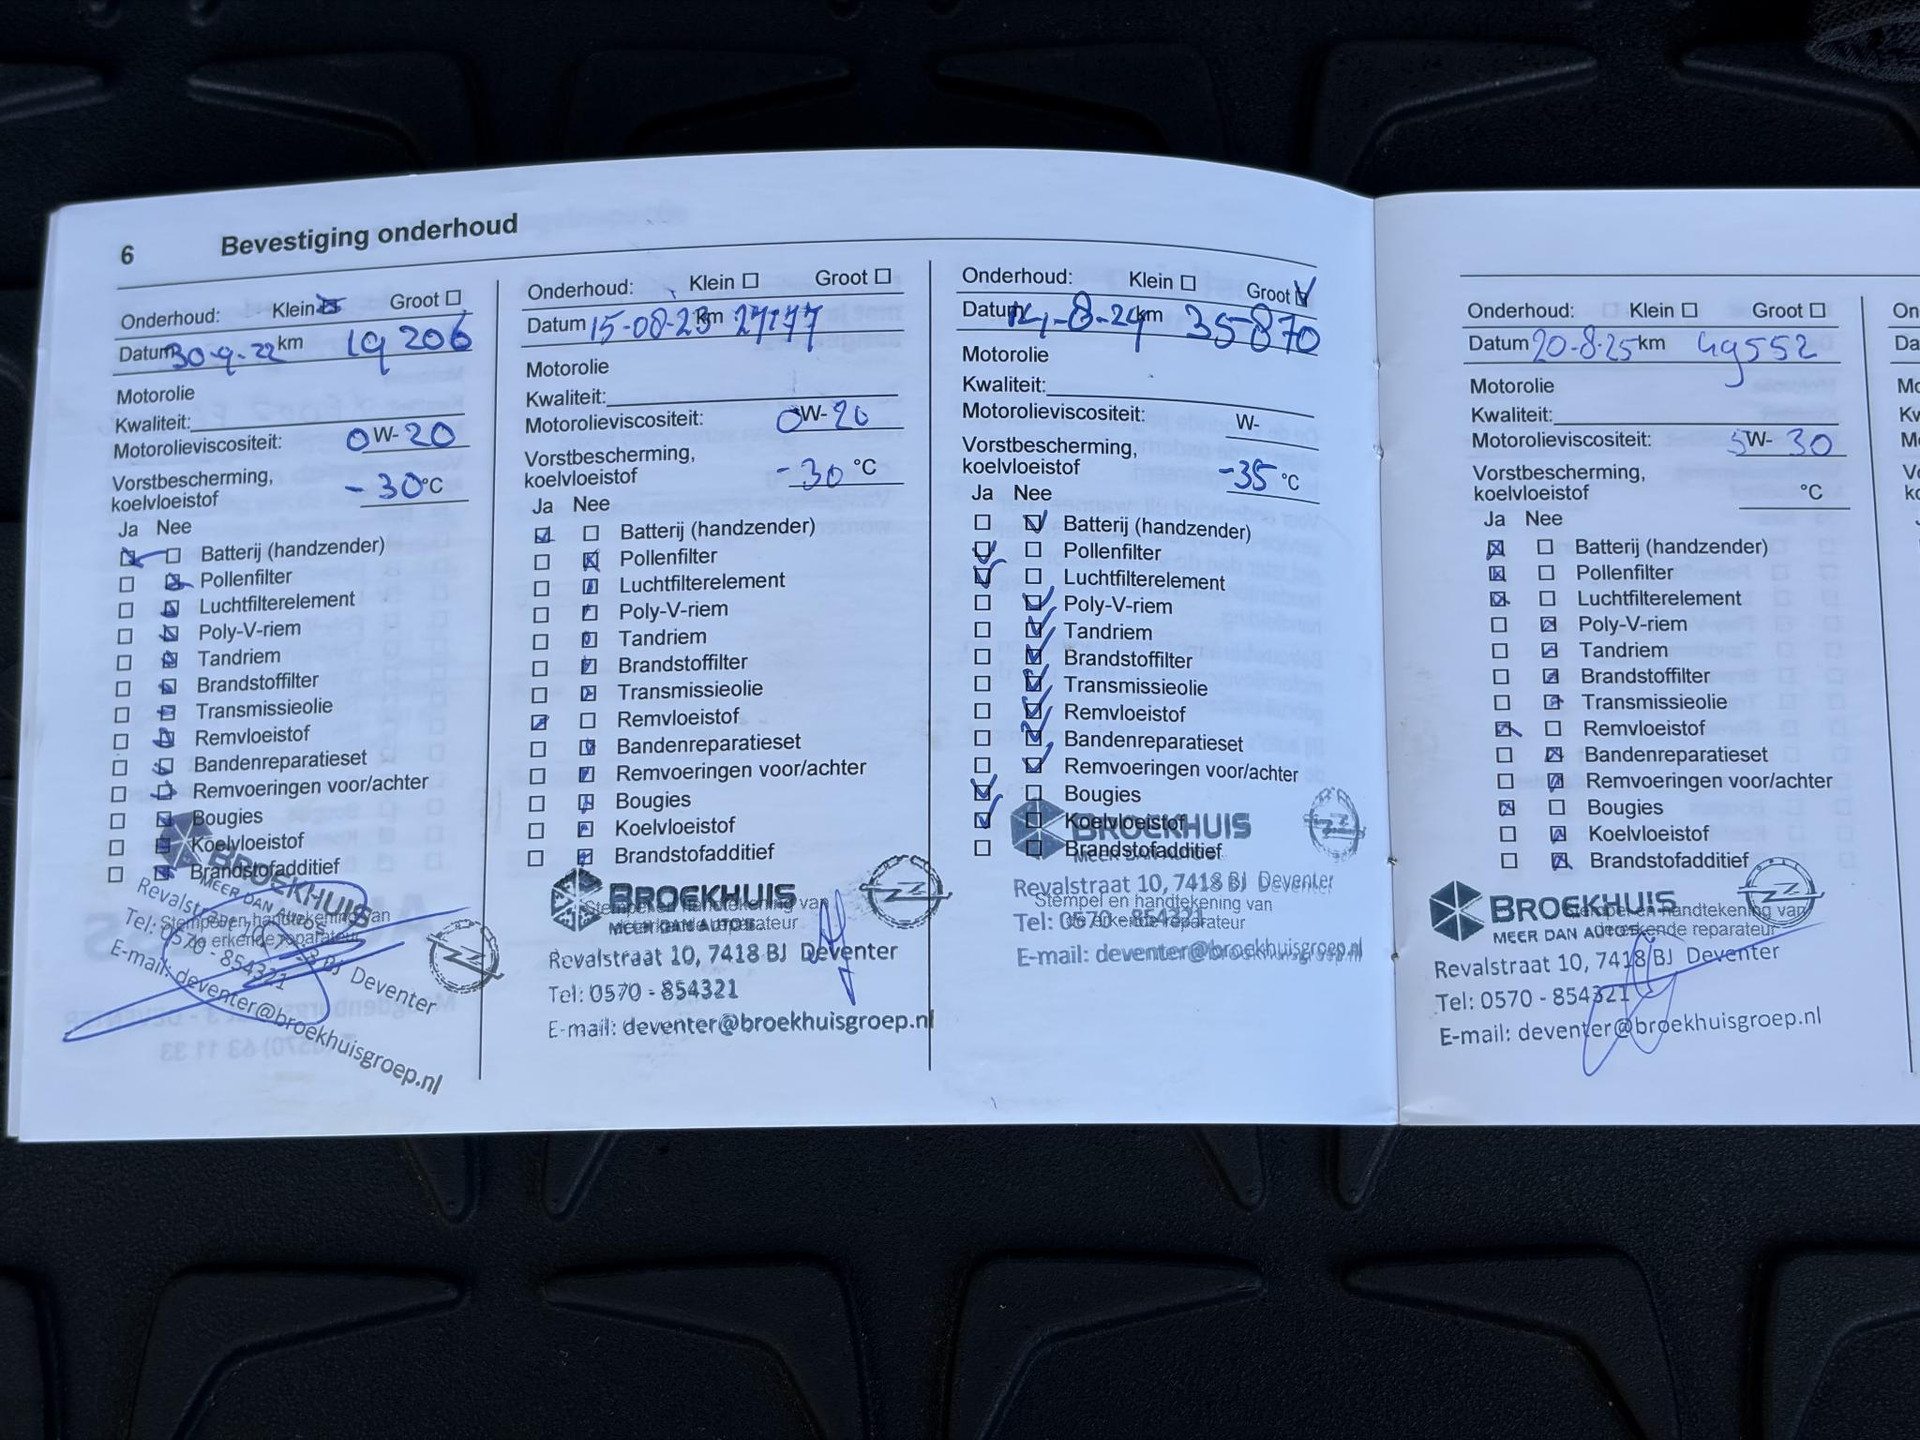 6 Bevestiging onderhoud
Onderhoud: Klein Groot
Datum 30-9-22 km 19 206
Motorolie
Kwaliteit:
Motorolieviscositeit: 0 W- 20
Vorstbescherming,
koelvloeistof - 30 °C
Ja Nee
Batterij (handzender)
Pollenfilter
Luchtfilterelement
Poly-V-riem
Tandriem
Brandstoffilter
Transmissieolie
Remvloeistof
Bandenreparatieset
Remvoeringen voor/achter
Bougies
Koelvloeistof
Brandstofadditief
BROEKHUIS
MEER DAN AUTO'S
Stempel en handtekening van
de erkende reparateur
Revalstraat 10, 7418 BJ Deventer
Tel: 0570 - 854321
E-mail: deventer@broekhuisgroep.nl
Onderhoud: Klein Groot
Datum 15-08-23 km 27177
Motorolie
Kwaliteit:
Motorolieviscositeit: 0 W- 20
Vorstbescherming,
koelvloeistof - 30 °C
Ja Nee
Batterij (handzender)
Pollenfilter
Luchtfilterelement
Poly-V-riem
Tandriem
Brandstoffilter
Transmissieolie
Remvloeistof
Bandenreparatieset
Remvoeringen voor/achter
Bougies
Koelvloeistof
Brandstofadditief
BROEKHUIS
Stempel en handtekening van
MEER DAN AUTO'S
de erkende reparateur
Revalstraat 10, 7418 BJ Deventer
Tel: 0570 - 854321
E-mail: deventer@broekhuisgroep.nl
Onderhoud: Klein Groot
Datum 14-8-24 km 35870
Motorolie
Kwaliteit:
Motorolieviscositeit: W-
Vorstbescherming,
koelvloeistof -35 °C
Ja Nee
Batterij (handzender)
Pollenfilter
Luchtfilterelement
Poly-V-riem
Tandriem
Brandstoffilter
Transmissieolie
Remvloeistof
Bandenreparatieset
Remvoeringen voor/achter
Bougies
Koelvloeistof
BROEKHUIS
Brandstofadditief
MEER DAN AUTO'S
Revalstraat 10, 7418 BJ Deventer
Stempel en handtekening van
Tel: 0570 - 854321
de erkende reparateur
E-mail: deventer@broekhuisgroep.nl
Onderhoud: Klein Groot
Datum 20-8-25 km 49552
Motorolie
Kwaliteit:
Motorolieviscositeit: 5 W- 30
Vorstbescherming,
koelvloeistof °C
Ja Nee
Batterij (handzender)
Pollenfilter
Luchtfilterelement
Poly-V-riem
Tandriem
Brandstoffilter
Transmissieolie
Remvloeistof
Bandenreparatieset
Remvoeringen voor/achter
Bougies
Koelvloeistof
Brandstofadditief
BROEKHUIS
Stempel en handtekening van
MEER DAN AUTO'S
de erkende reparateur
Revalstraat 10, 7418 BJ Deventer
Tel: 0570 - 854321
E-mail: deventer@broekhuisgroep.nl